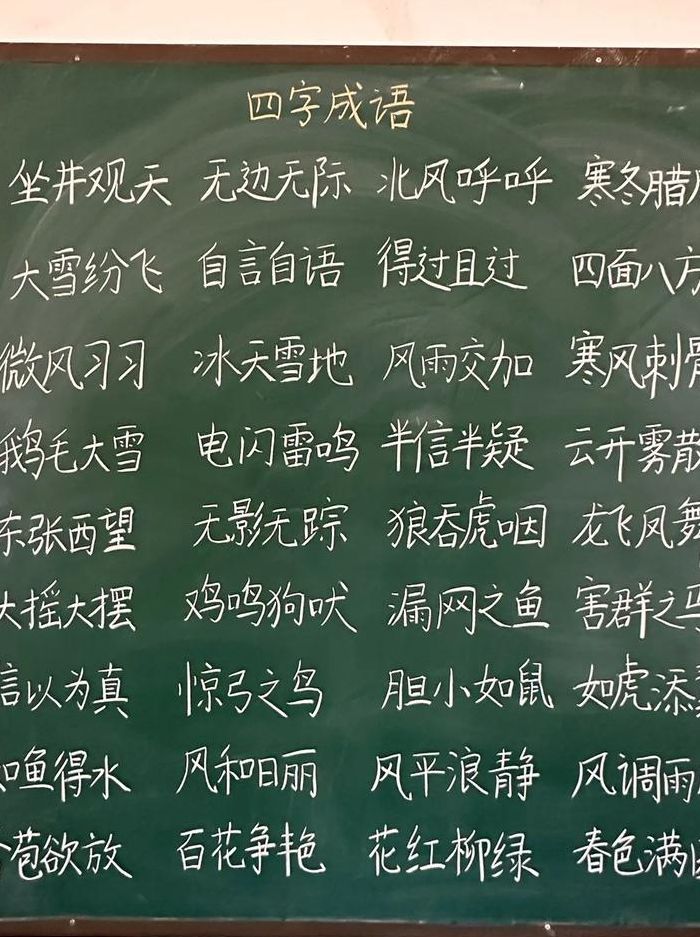 四字成语
坐井观天 无边无际 北风呼呼 寒冬腊月
大雪纷飞 自言自语 得过且过 四面八方
微风习习 冰天雪地 风雨交加 寒风刺骨
鹅毛大雪 电闪雷鸣 半信半疑 云开雾散
东张西望 无影无踪 狼吞虎咽 龙飞凤舞
大摇大摆 鸡鸣狗吠 漏网之鱼 害群之马
信以为真 惊弓之鸟 胆小如鼠 如虎添翼
如鱼得水 风和日丽 风平浪静 风调雨
苞欲放 百花争艳 花红柳绿 春色满园